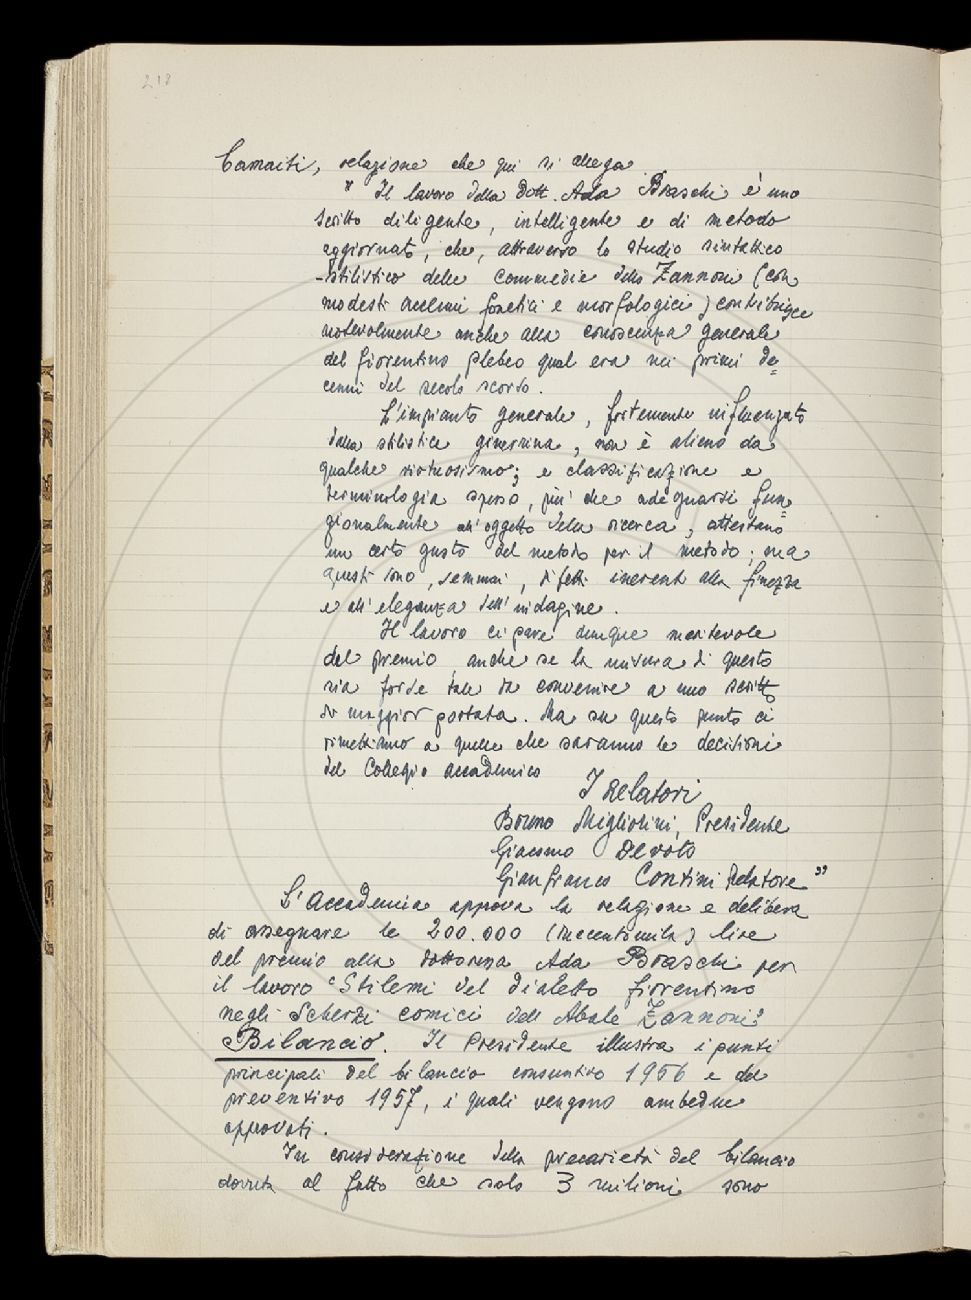 218
Camaiti, relazione che qui si allega
" Il lavoro della Dott. Ada Braschi è uno
scritto diligente, intelligente e di metodo
aggiornato, che, attraverso lo studio sintattico
-stilistico delle commedie dello Zannoni (con
modesti accenni fonetici e morfologici) contribuisce
notevolmente anche alla conoscenza generale
del fiorentino plebeo qual era nei primi de=
cenni del secolo scorso.
L'impianto generale, fortemente influenzato
dalla stilistica ginevrina, non è alieno da
qualche virtuosismo; e classificazione e
terminologia spesso, più che adeguarsi fun=
zionalmente all'oggetto della ricerca, attestano
un certo gusto del metodo per il metodo; ma
questi sono, semmai, difetti inerenti alla finezza
e all'eleganza dell'indagine.
Il lavoro ci pare dunque meritevole
del premio, anche se la misura di questo
sia forse tale da convenire a uno scritto
di maggior portata. Ma su questo punto ci
rimettiamo a quelle che saranno le decisioni
del Collegio accademico
I Relatori
Bruno Migliorini, Presidente
Giacomo Devoto
Gianfranco Contini Relatore "
L'Accademia approva la relazione e delibera
di assegnare le 200.000 (duecentomila) lire
del premio alla dottoressa Ada Braschi per
il lavoro "Stilemi del dialetto fiorentino
negli Scherzi comici dell'Abate Zannoni".
Bilancio. Il Presidente illustra i punti
principali del bilancio consuntivo 1956 e del
preventivo 1957, i quali vengono ambedue
approvati.
In considerazione della precarietà del bilancio
dovuta al fatto che solo 3 milioni sono